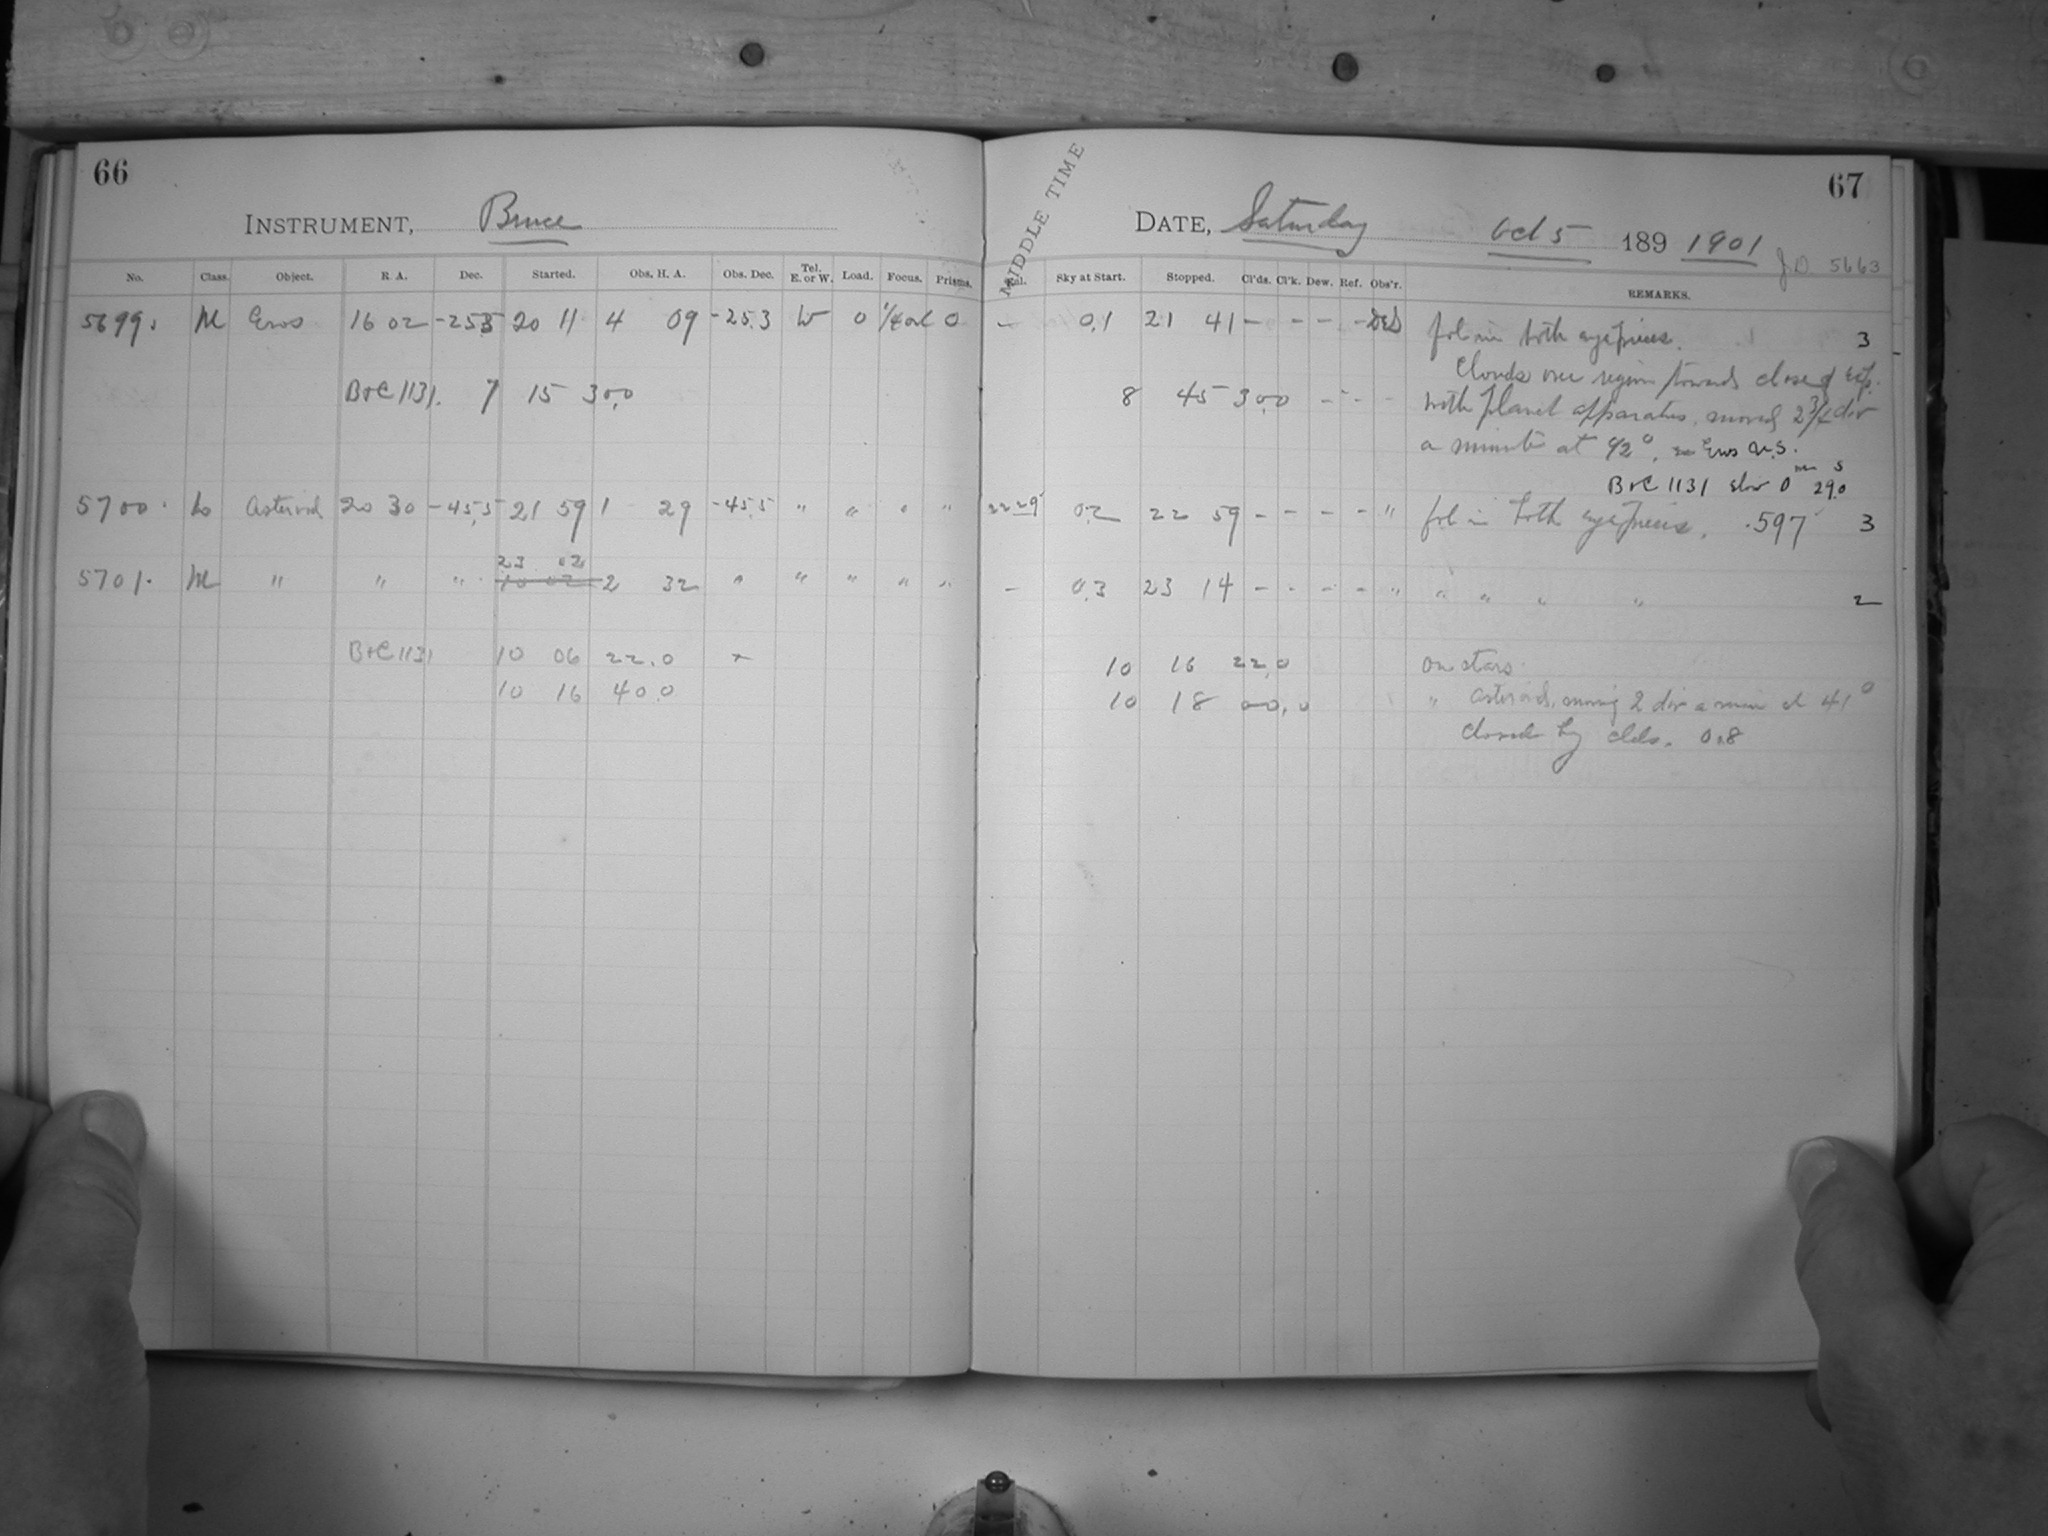 66
INSTRUMENT, Bruce
No. Class. Object. R. A. Dec. Started. Obs. H. A. Obs. Dec. Tel. E. or W. Load. Focus. Prisms.
5699. M Eros 16 02 -25.3 20 11 4 09 -25.3 W 0 0
B+C 1131. 7 15 30.0
5700. L Asteroid 20 30 -45.5 21 59 1 29 -45.5 " " " "
23 02
5701. M " " " 10 02 2 32 " " " " "
B+C 1131 10 06 22.0
10 16 40.0
67
MIDDLE TIME
DATE, Saturday Oct 5 189 1901
J.D. 5663
Rel. Sky at Start. Stopped. Cl'ds. Cl'k. Dew. Ref. Obs'r. REMARKS.
- 0.1 21 41 - - - - DES fol in both eyepieces. 3
Clouds over region towards close of exp.
8 45 30.0 - - - with planet apparatus, moved 2 3/4 div
a minute at 42°, Eros
B+C 1131 slow 0 m 29.0 s
22 29 0.2 22 59 - - - - " fol in both eyepieces. .597 3
- 0.3 23 14 - - - - " " " " " 2
10 16 22.0 on stars
10 18 00.0 " asteroid, moving 2 div a min at 41°
closed by clds. 0.8